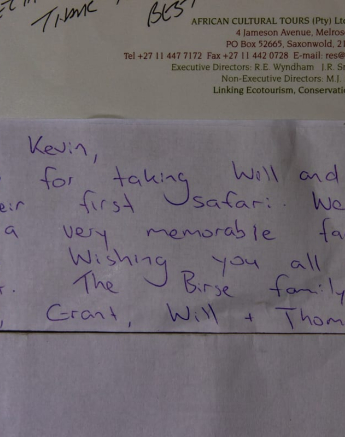 BEST
AFRICAN CULTURAL TOURS (Pty) Ltd
4 Jameson Avenue, Melrose
PO Box 52665, Saxonwold, 21
Tel +27 11 447 7172 Fax +27 11 442 0728 E-mail: res@
Executive Directors: R.E. Wyndham J.R. S
Non-Executive Directors: M.J.
Linking Ecotourism, Conservati
Kevin,
for taking Will and
eir first safari. We
a very memorable fa
Wishing you all
The Birse family
, Grant, Will + Thom